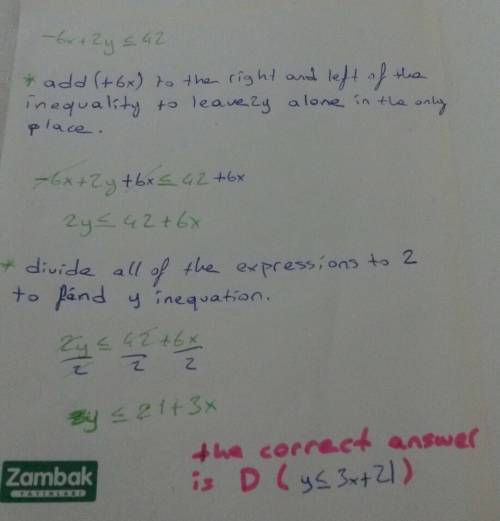 -6x+2y ≤ 42
* add (+6x) to the right and left of the
inequality to leave 2y alone in the only
place.
-6x+2y+6x ≤ 42+6x
2y ≤ 42+6x
* divide all of the expressions to 2
to find y inequation.
2y/2 ≤ 42/2 + 6x/2
y ≤ 21+3x
the correct answer
is D (y ≤ 3x+21)
Zambak
YAYINLARI